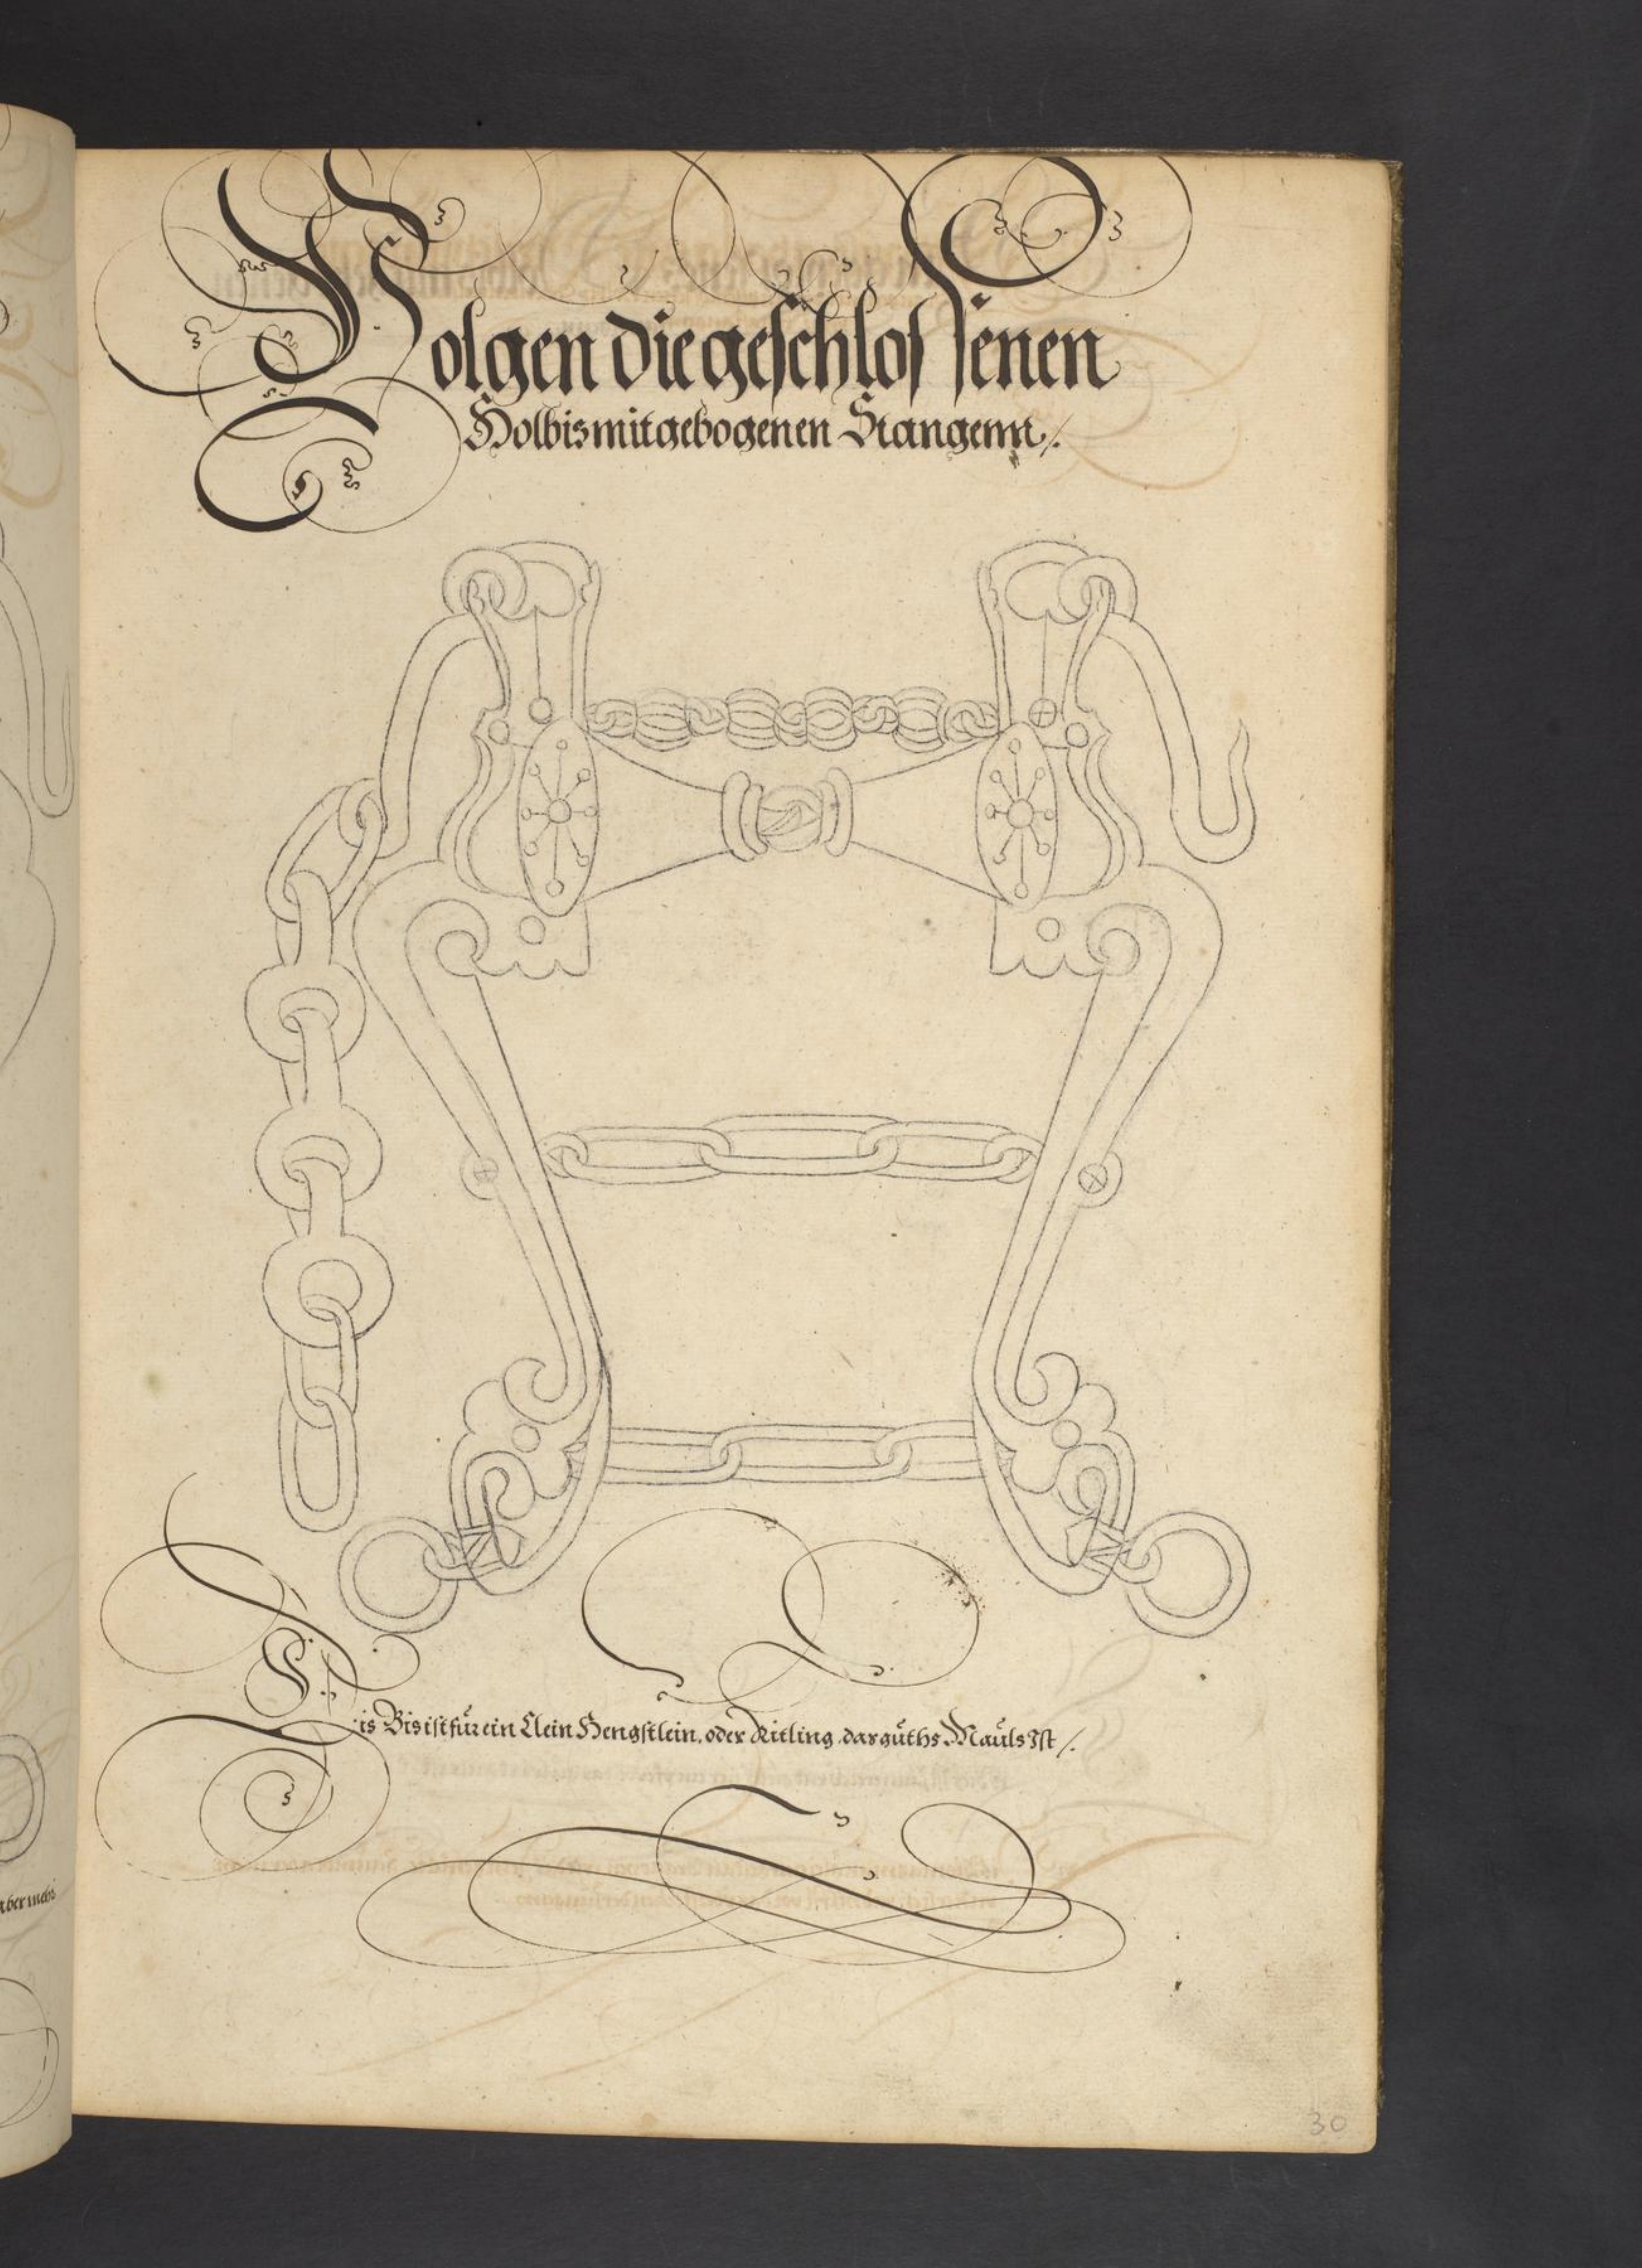 Folgen die geschlossenen
Holbis mit gebogenen Stangenn /.
Dis Bis ist für ein Clein Hengstlein. oder Ritling das guths Mauls Ist /.
aber mehr
30